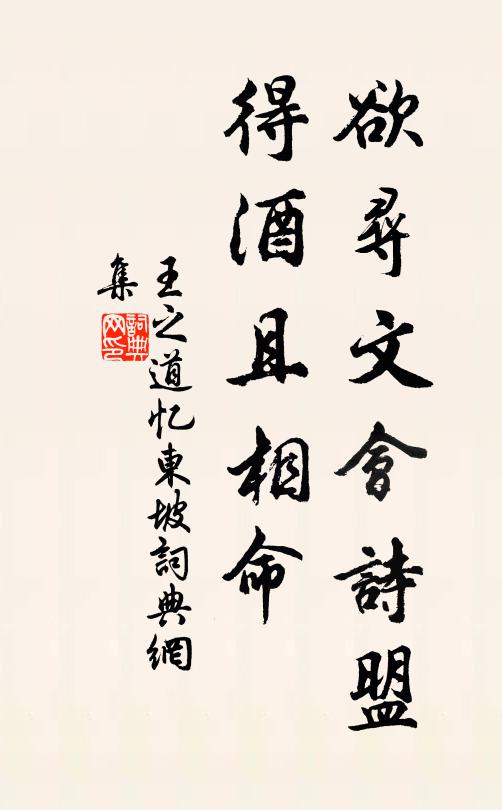 欲尋文會詩盟
得酒且相命
王之道忆東坡詞典網
集
詞典网印